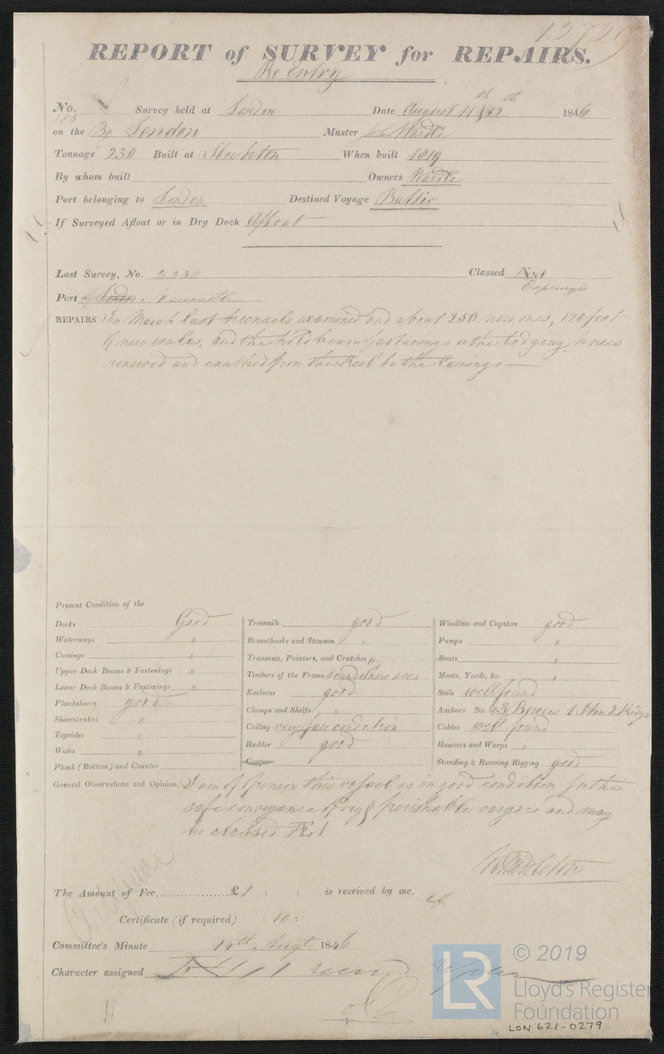 REPORT of SURVEY for REPAIRS.
Re Entry
No. Survey held at London Date August 11th & 12th 1846
on the Bq London Master Wardle
Tonnage 230 Built at Stockton When built 1819
By whom built Owners Wardle
Port belonging to London Destined Voyage Baltic
If Surveyed Afloat or in Dry Dock Afloat
Last Survey, No. Classed Æ 1
Expunged
Port Newcastle
REPAIRS In March last treenails examined and about 250 new ones, 120 feet
of new wales, and the hold beam fastenings & the lodging knees
renewed and caulked from the Keel to the Comings
Present Condition of the
Decks Good
Waterways "
Comings "
Upper Deck Beams & Fastenings "
Lower Deck Beams & Fastenings "
Planksheers good
Sheerstrakes "
Topsides "
Wales "
Plank (Bottom) and Counter
Treenails good
Breasthooks and Stemson "
Transoms, Pointers, and Crutches "
Timbers of the Frame sound where seen
Keelsons good
Clamps and Shelfs "
Ceiling very fair condition
Rudder good
Copper
Windlass and Capstan good
Pumps "
Boats "
Masts, Yards, &c. "
Sails well found
Anchors No. 3 Bowers 1 Strm 2 Kedge
Cables well found
Hawsers and Warps "
Standing & Running Rigging good
General Observations and Opinion, I am of Opinion this vessel is in good condition for the
safe conveyance of dry & perishable cargoes and may
be classed Æ 1
The Amount of Fee £1 : : is received by me,
Certificate (if required) : 10 :
Committee's Minute 14th Augt 1846
Character assigned Æ 1
© 2019
LR
Lloyd's Register
Foundation
LON 621-0279